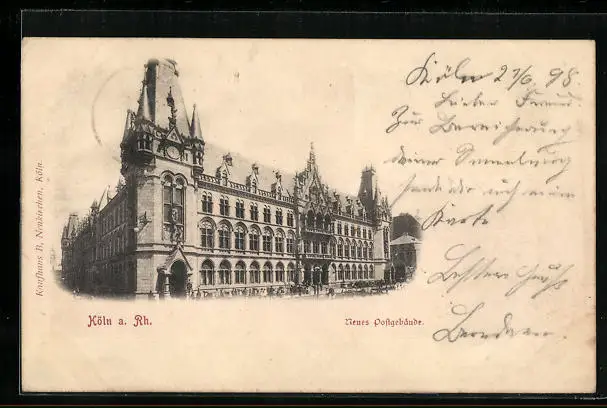 Köln 27/6. 98.
Lieber Freund
Zur Bereicherung
deiner Sammlung
sende dir auch eine
Karte
Besten Gruß
Kaufhaus B. Neukirchen, Köln.
Köln a. Rh.
Neues Postgebäude.